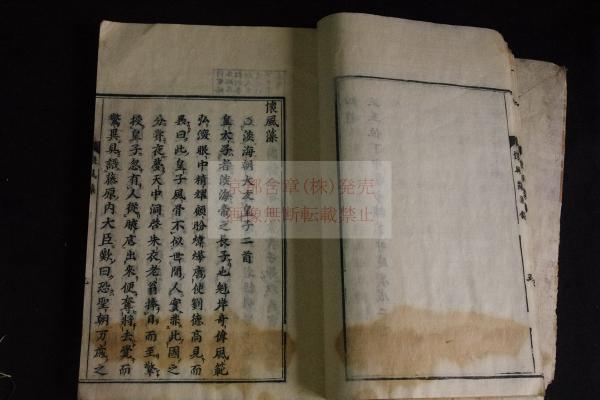 懐風藻
淡海朝大友皇子二首
皇太子者淡海帝之長子也魁岸奇偉風範
弘深眼中精耀顧盻煒燁唐使劉德高見而
異曰此皇子風骨不似世間人實非此國之
分嘗夜夢天中洞啓朱衣老翁捧日而至擎
授皇子忽有人從腋底出來便奪將去覺而
驚異具語藤原内大臣歎曰恐聖朝万歳之
京都舎章(株)発売
画像無断転載禁止